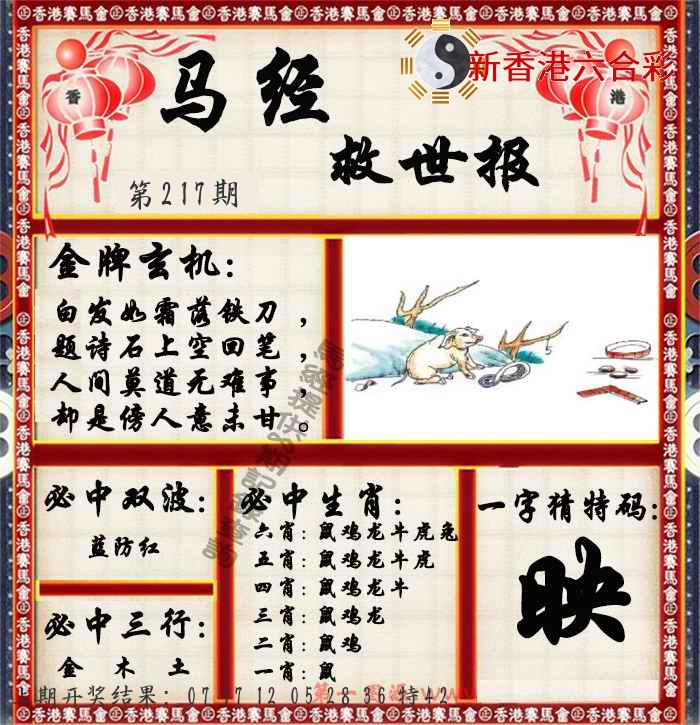 新香港六合彩
香
港
马经
救世报
第217期
金牌玄机:
白发如霜落铁刀，
题诗石上空回笔，
人间莫道死难事，
却是傍人意未甘。
必中双波:
蓝防红
必中三行:
金 木 土
必中生肖:
六肖: 鼠鸡龙牛虎兔
五肖: 鼠鸡龙牛虎
四肖: 鼠鸡龙牛
三肖: 鼠鸡龙
二肖: 鼠鸡
一肖: 鼠
一字猜特码:
映
期开奖结果: 07 17 12 05 28 36 特42
香港賽馬會